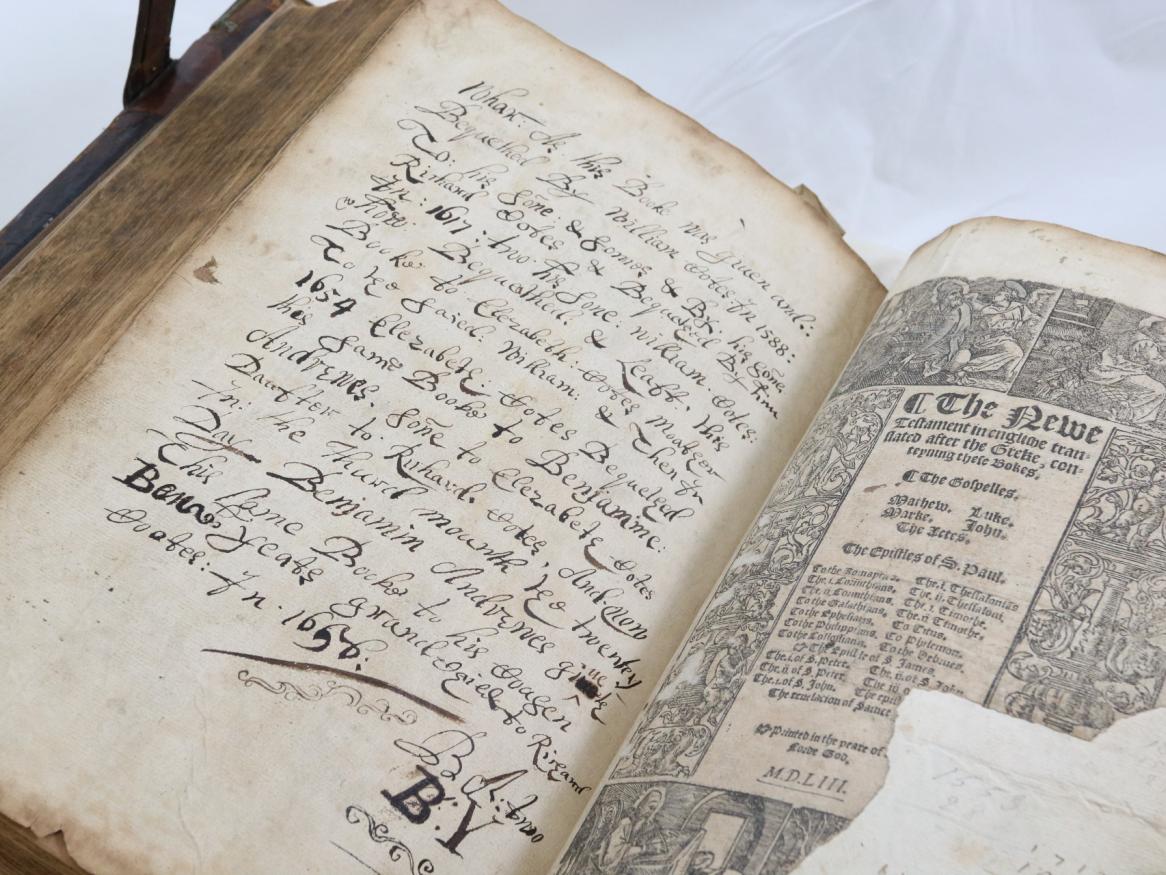 this Booke was giuen and:
Bequethed By William Cotes In 1588:
To: his Sone & & By his Sone
Richard Cotes & Bequethed By him
In: 1617: two his Sone: William: Cotes:
Now Bequethed & Leaft. this
Booke to Elezabeth: Cotes Moather
To the Saied: William: & Then In
1654 Elezabeth: Cotes Bequeted
this Same Booke to Beniamine:
Andrewes. Sone to Elezabeth Cotes
Daufter to. Richard. Cotes, And Now
In: the Third mounth the twenty
Day Benjamin Andrewes
This Same Booke to his
Yeats Grand to Richard
Coates: In. 1656:
B A: to
B:Y
¶ The Newe
Testament in englishe tran-
slated after the Greke, con-
teynyng these Bokes.
¶ The Gospelles.
Mathew. Luke.
Marke. John.
The Actes.
The Epistles of S. Paul.
To the Romaynes. The.i. Thessalonians
The.i. Corinthians. The.ii. Thessaloni.
The.ii. Corinthians. The.i. Timothe.
To the Galathians. The.ii Timothe.
To the Ephesians. To Titus.
To the Philippians. To Philemon.
To the Collossians. To the Hebrues.
The Epistle of S. James.
The.i. of S. Peter. The.ii. of S. John
The.ii of S. Peter. The.iii
The.i. of S. John. The
The revelacion of Sainct
Printed in the yeare of
Lorde God.
M.D.LIII.